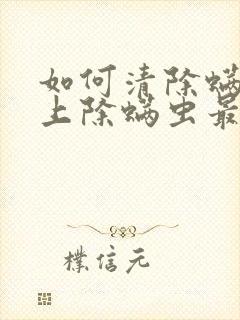 如何清除螨
上除螨虫最
檏信元